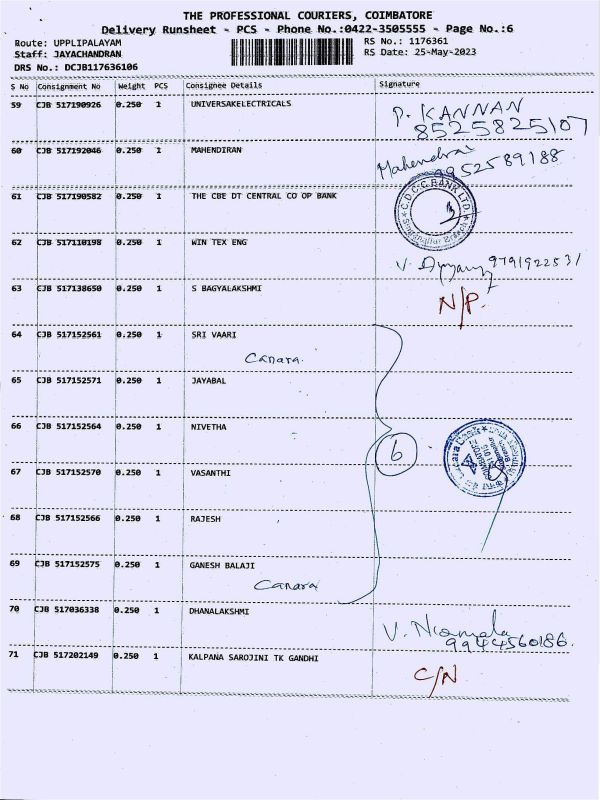 THE PROFESSIONAL COURIERS, COIMBATORE
Delivery Runsheet - PCS - Phone No.:0422-3505555 - Page No.:6
Route: UPPLIPALAYAM RS No.: 1176361
Staff: JAYACHANDRAN RS Date: 25-May-2023
DRS No.: DCJB117636106
S No Consignment No Weight PCS Consignee Details Signature
59 CJB 517190926 0.250 1 UNIVERSAKELECTRICALS P. KANNAN
8525825107
60 CJB 517192046 0.250 1 MAHENDIRAN Mahendra
9952589188
61 CJB 517190582 0.250 1 THE CBE DT CENTRAL CO OP BANK C.D.C.C. BANK LTD.
Singanallur Branch
62 CJB 517110198 0.250 1 WIN TEX ENG V. 9791922531
63 CJB 517138650 0.250 1 S BAGYALAKSHMI N/P.
64 CJB 517152561 0.250 1 SRI VAARI
Canara
65 CJB 517152571 0.250 1 JAYABAL
66 CJB 517152564 0.250 1 NIVETHA
6
67 CJB 517152570 0.250 1 VASANTHI
68 CJB 517152566 0.250 1 RAJESH
69 CJB 517152575 0.250 1 GANESH BALAJI
Canara
70 CJB 517036338 0.250 1 DHANALAKSHMI V. Nirmala
9944560186.
71 CJB 517202149 0.250 1 KALPANA SAROJINI TK GANDHI C/N